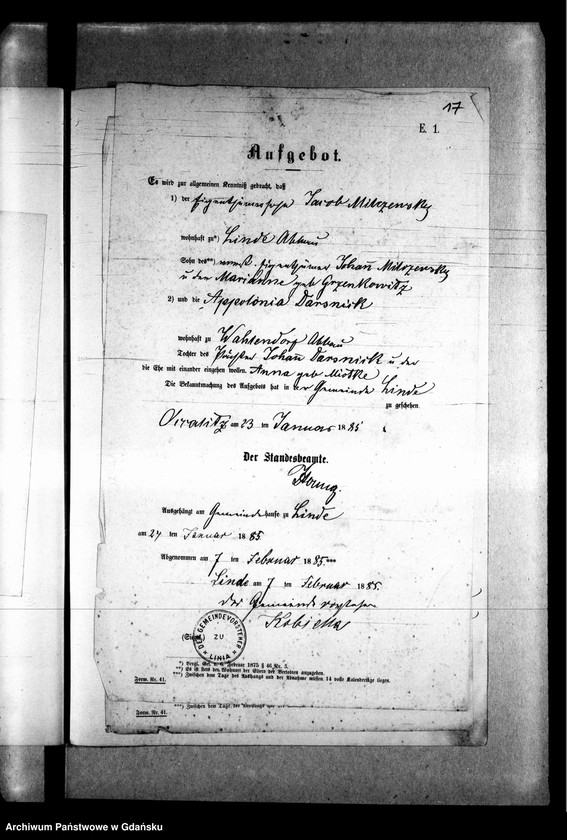 17
E. 1.
Aufgebot.
Es wird zur allgemeinen Kenntniß gebracht, daß
1) der Eigenthümersohn Jacob Milczewsky
wohnhaft zu*) Linde Abbau
Sohn des**) Eigenthümer Johañ Milczewsky
u der Marianne geb Grzenkowitz
2) und die Appolonia Darsnick
wohnhaft zu Wahsendorf Abbau
Tochter des Pächter Johañ Darsnick u der
die Ehe mit einander eingehen wollen. Anna geb Miotke
Die Bekanntmachung des Aufgebots hat in der Gemeinde Linde
zu geschehen.
am 23 ten Januar 1885
Der Standesbeamte.
Ausgehängt am Gemeindehause zu Linde
am 24 ten Januar 1885
Abgenommen am 7 ten Februar 1885.***
Linde am 7 ten Februar 1885.
Der Gemeindevorsteher
(Siegel.)
DER GEMEINDEVORSTEHER ZU LINIA
*) Vergl. Ges. v. 6. Februar 1875 § 46 Nr. 3.
**) Es ist hier der Wohnort der Eltern des Verlobten anzugeben.
***) Zwischen dem Tage des Aushangs und der Abnahme müssen 14 volle Kalendertage liegen.
Form. Nr. 41.
***) Zwischen dem Tage des Aushangs
Form. Nr. 41.
Archiwum Państwowe w Gdańsku